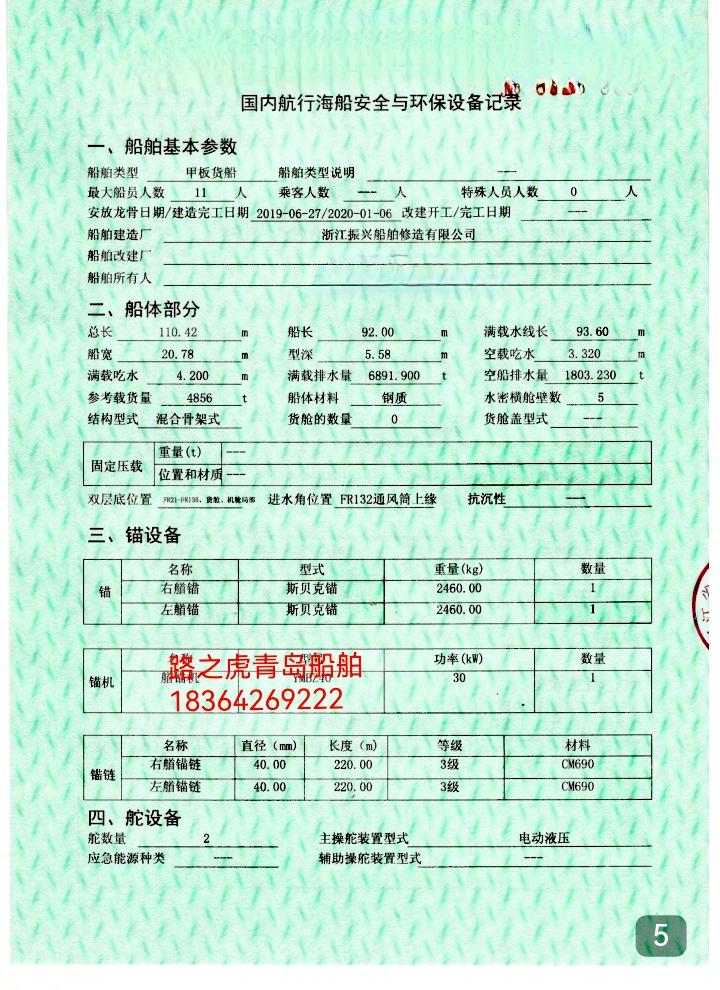 国内航行海船安全与环保设备记录
一、船舶基本参数
船舶类型 甲板货船 船舶类型说明 ---
最大船员人数 11 人 乘客人数 --- 人 特殊人员人数 0 人
安放龙骨日期/建造完工日期 2019-06-27/2020-01-06 改建开工/完工日期 ---
船舶建造厂 浙江振兴船舶修造有限公司
船舶改建厂
船舶所有人
二、船体部分
总长 110.42 m 船长 92.00 m 满载水线长 93.60 m
船宽 20.78 m 型深 5.58 m 空载吃水 3.320 m
满载吃水 4.200 m 满载排水量 6891.900 t 空船排水量 1803.230 t
参考载货量 4856 t 船体材料 钢质 水密横舱壁数 5
结构型式 混合骨架式 货舱的数量 0 货舱盖型式 ---
固定压载 重量(t) ---
位置和材质 ---
双层底位置 FR21-FR135，货舱、机舱局部 进水角位置 FR132通风筒上缘 抗沉性 ---
三、锚设备
锚 名称 型式 重量(kg) 数量
右艏锚 斯贝克锚 2460.00 1
左艏锚 斯贝克锚 2460.00 1
锚机 功率(kW) 数量
30 1
路之虎青岛船舶
18364269222
锚链 名称 直径（mm） 长度（m） 等级 材料
右艏锚链 40.00 220.00 3级 CM690
左艏锚链 40.00 220.00 3级 CM690
四、舵设备
舵数量 2 主操舵装置型式 电动液压
应急能源种类 --- 辅助操舵装置型式 ---
5